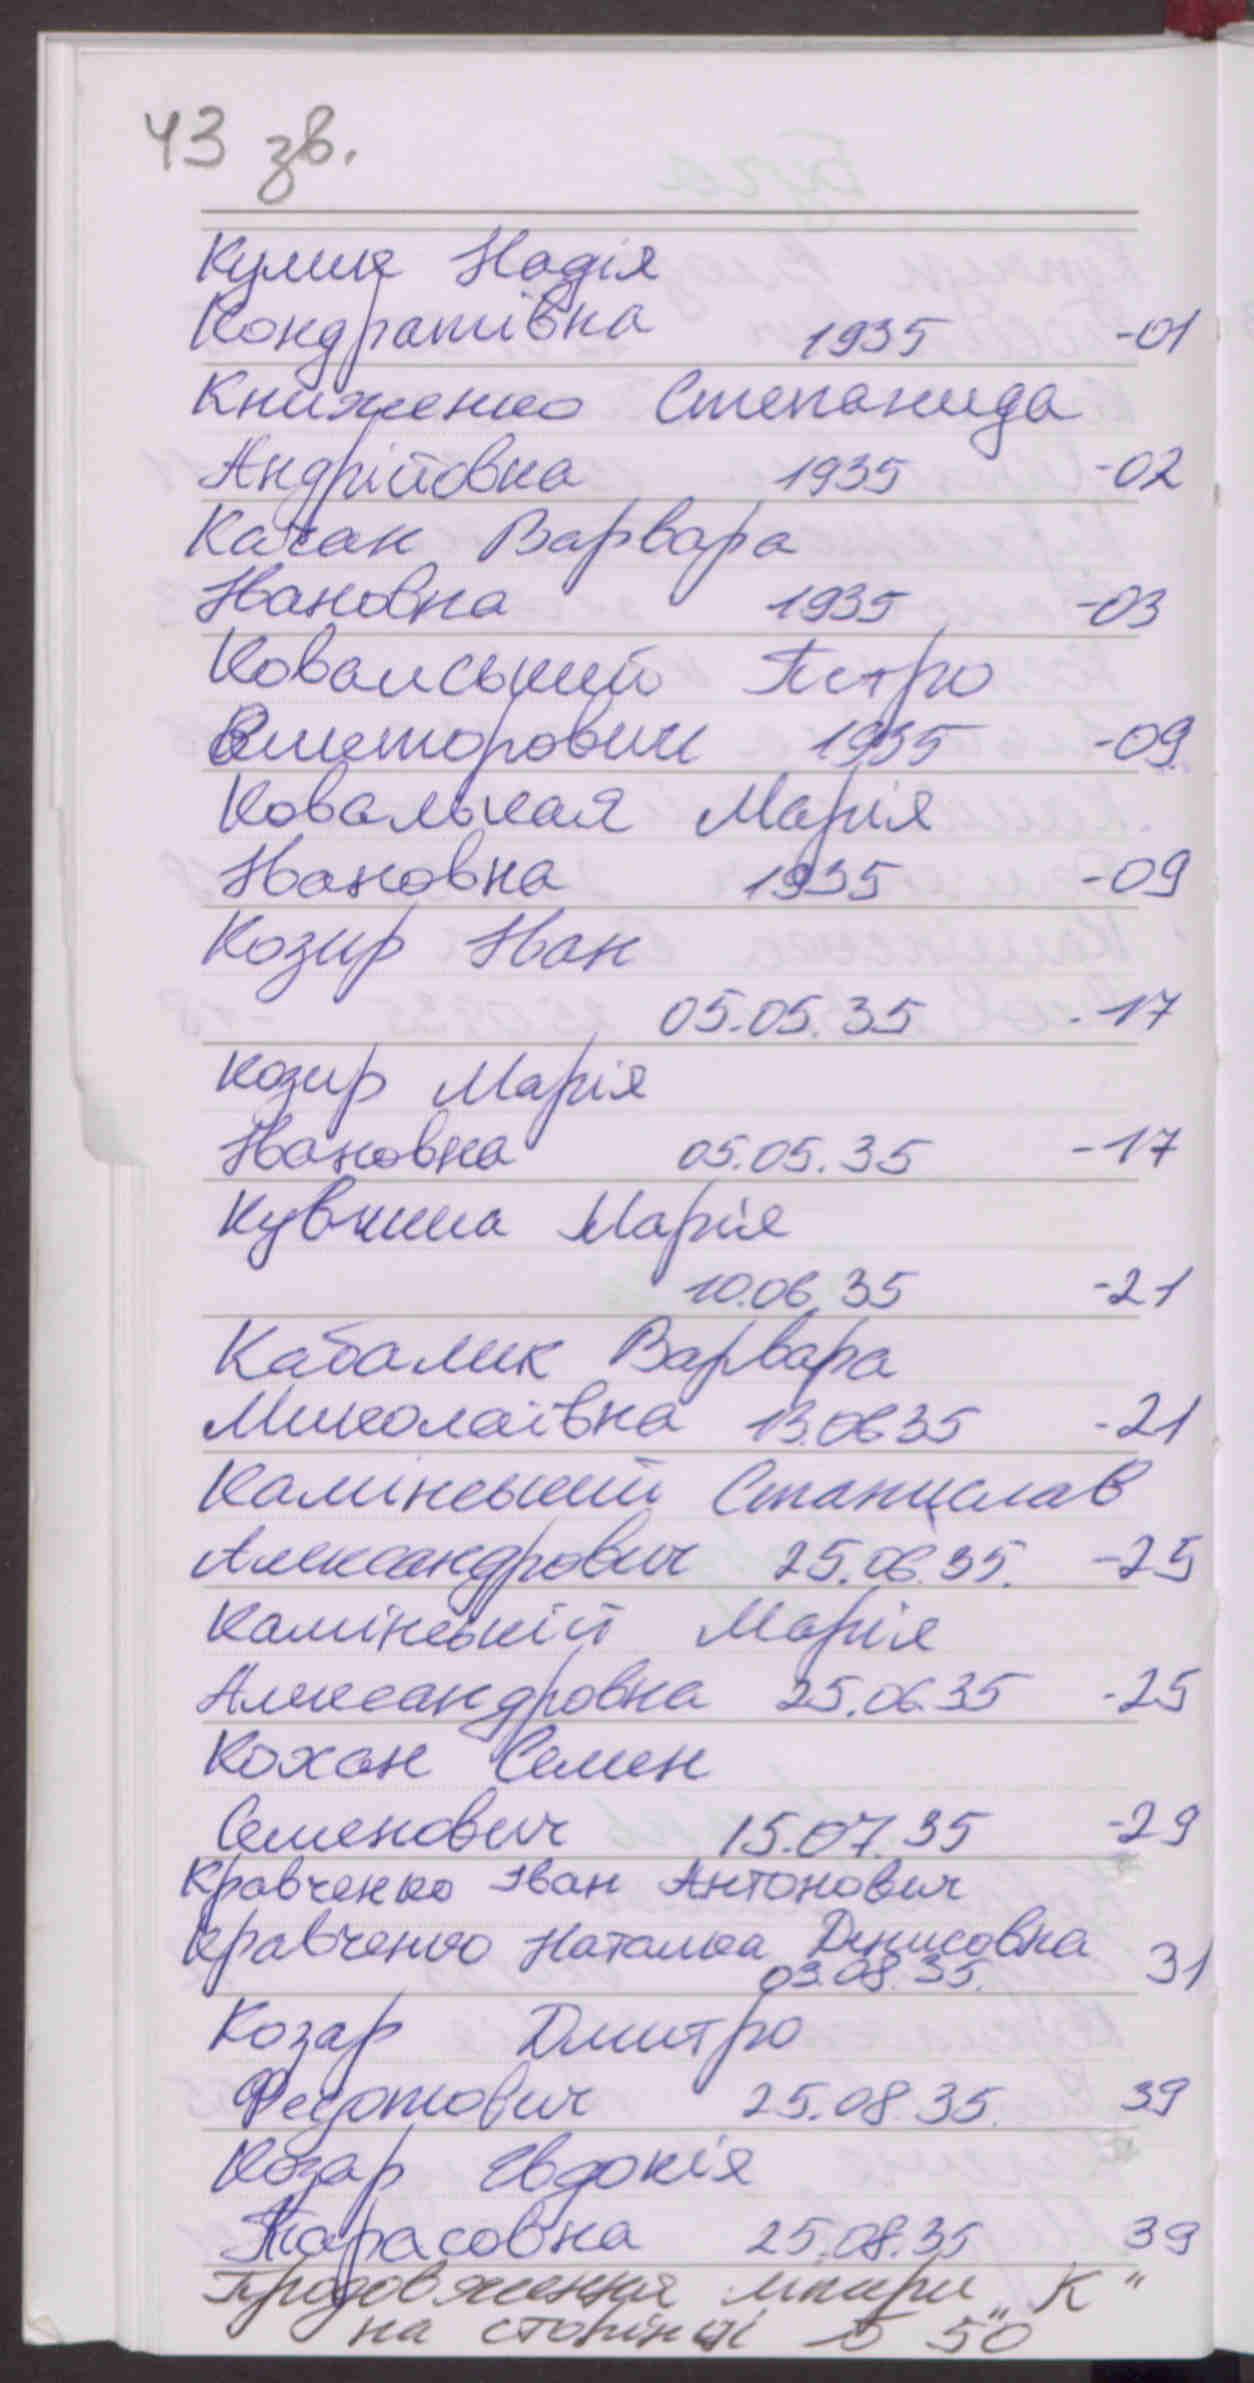 43 зв.
Кулик Надія
Кондратівна 1935 -01
Книженко Степанида
Андрійовна 1935 -02
Качан Варвара
Івановна 1935 -03
Ковальський Петро
Вікторович 1935 -09
Ковальчая Марія
Івановна 1935 -09
Козир Іван
05.05.35 -17
Козир Марія
Івановна 05.05.35 -17
Марія
10.06.35 -21
Кабалик Варвара
Миколаївна 13.06.35 -21
Камінський Станислав
Александрович 25.06.35. -25
Камінській Марія
Александровна 25.06.35 -25
Кохан Семен
Семенович 15.07.35 -29
Кравченко Іван Антонович
Кравченко Наталка Денисовна
03.08.35. 31
Козар Дмитро
Федотович 25.08.35. 39
Козар Євдокія
Тарасовна 25.08.35 39
Продовження літери „К"
на сторінці 50